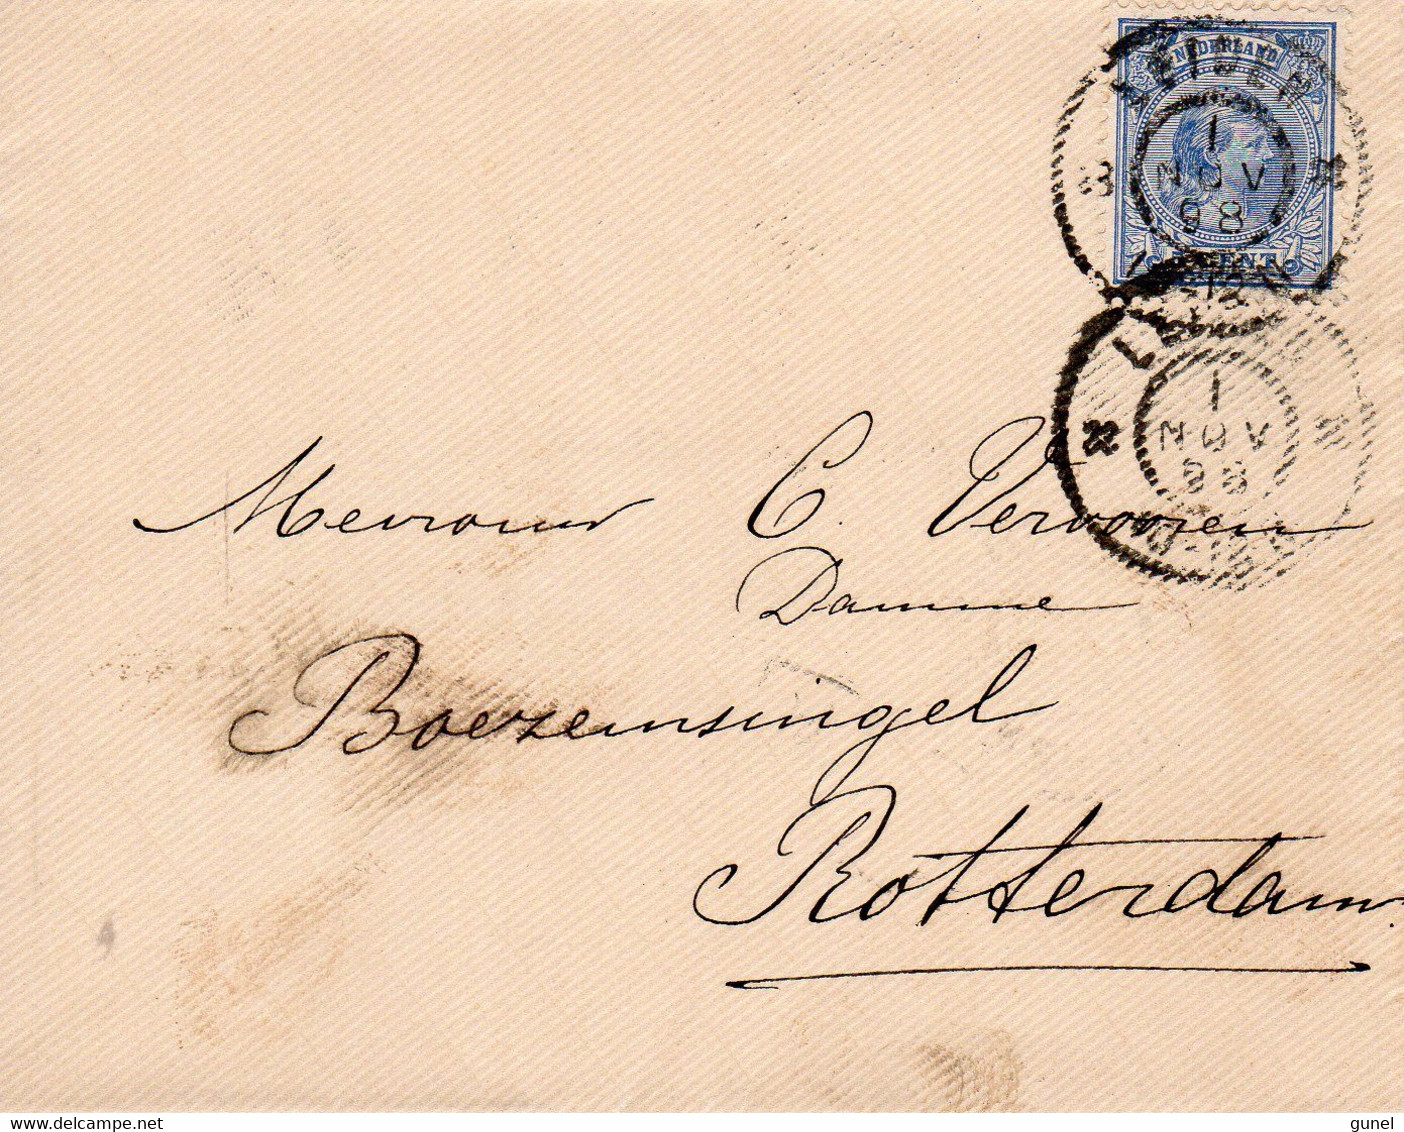 NEDERLAND
LEIDEN
1
NOV
98
CENT
1
NOV
98
Mevrouw C. Vervooren
Damme
Boezemsingel
Rotterdam.
www.delcampe.net
gunel